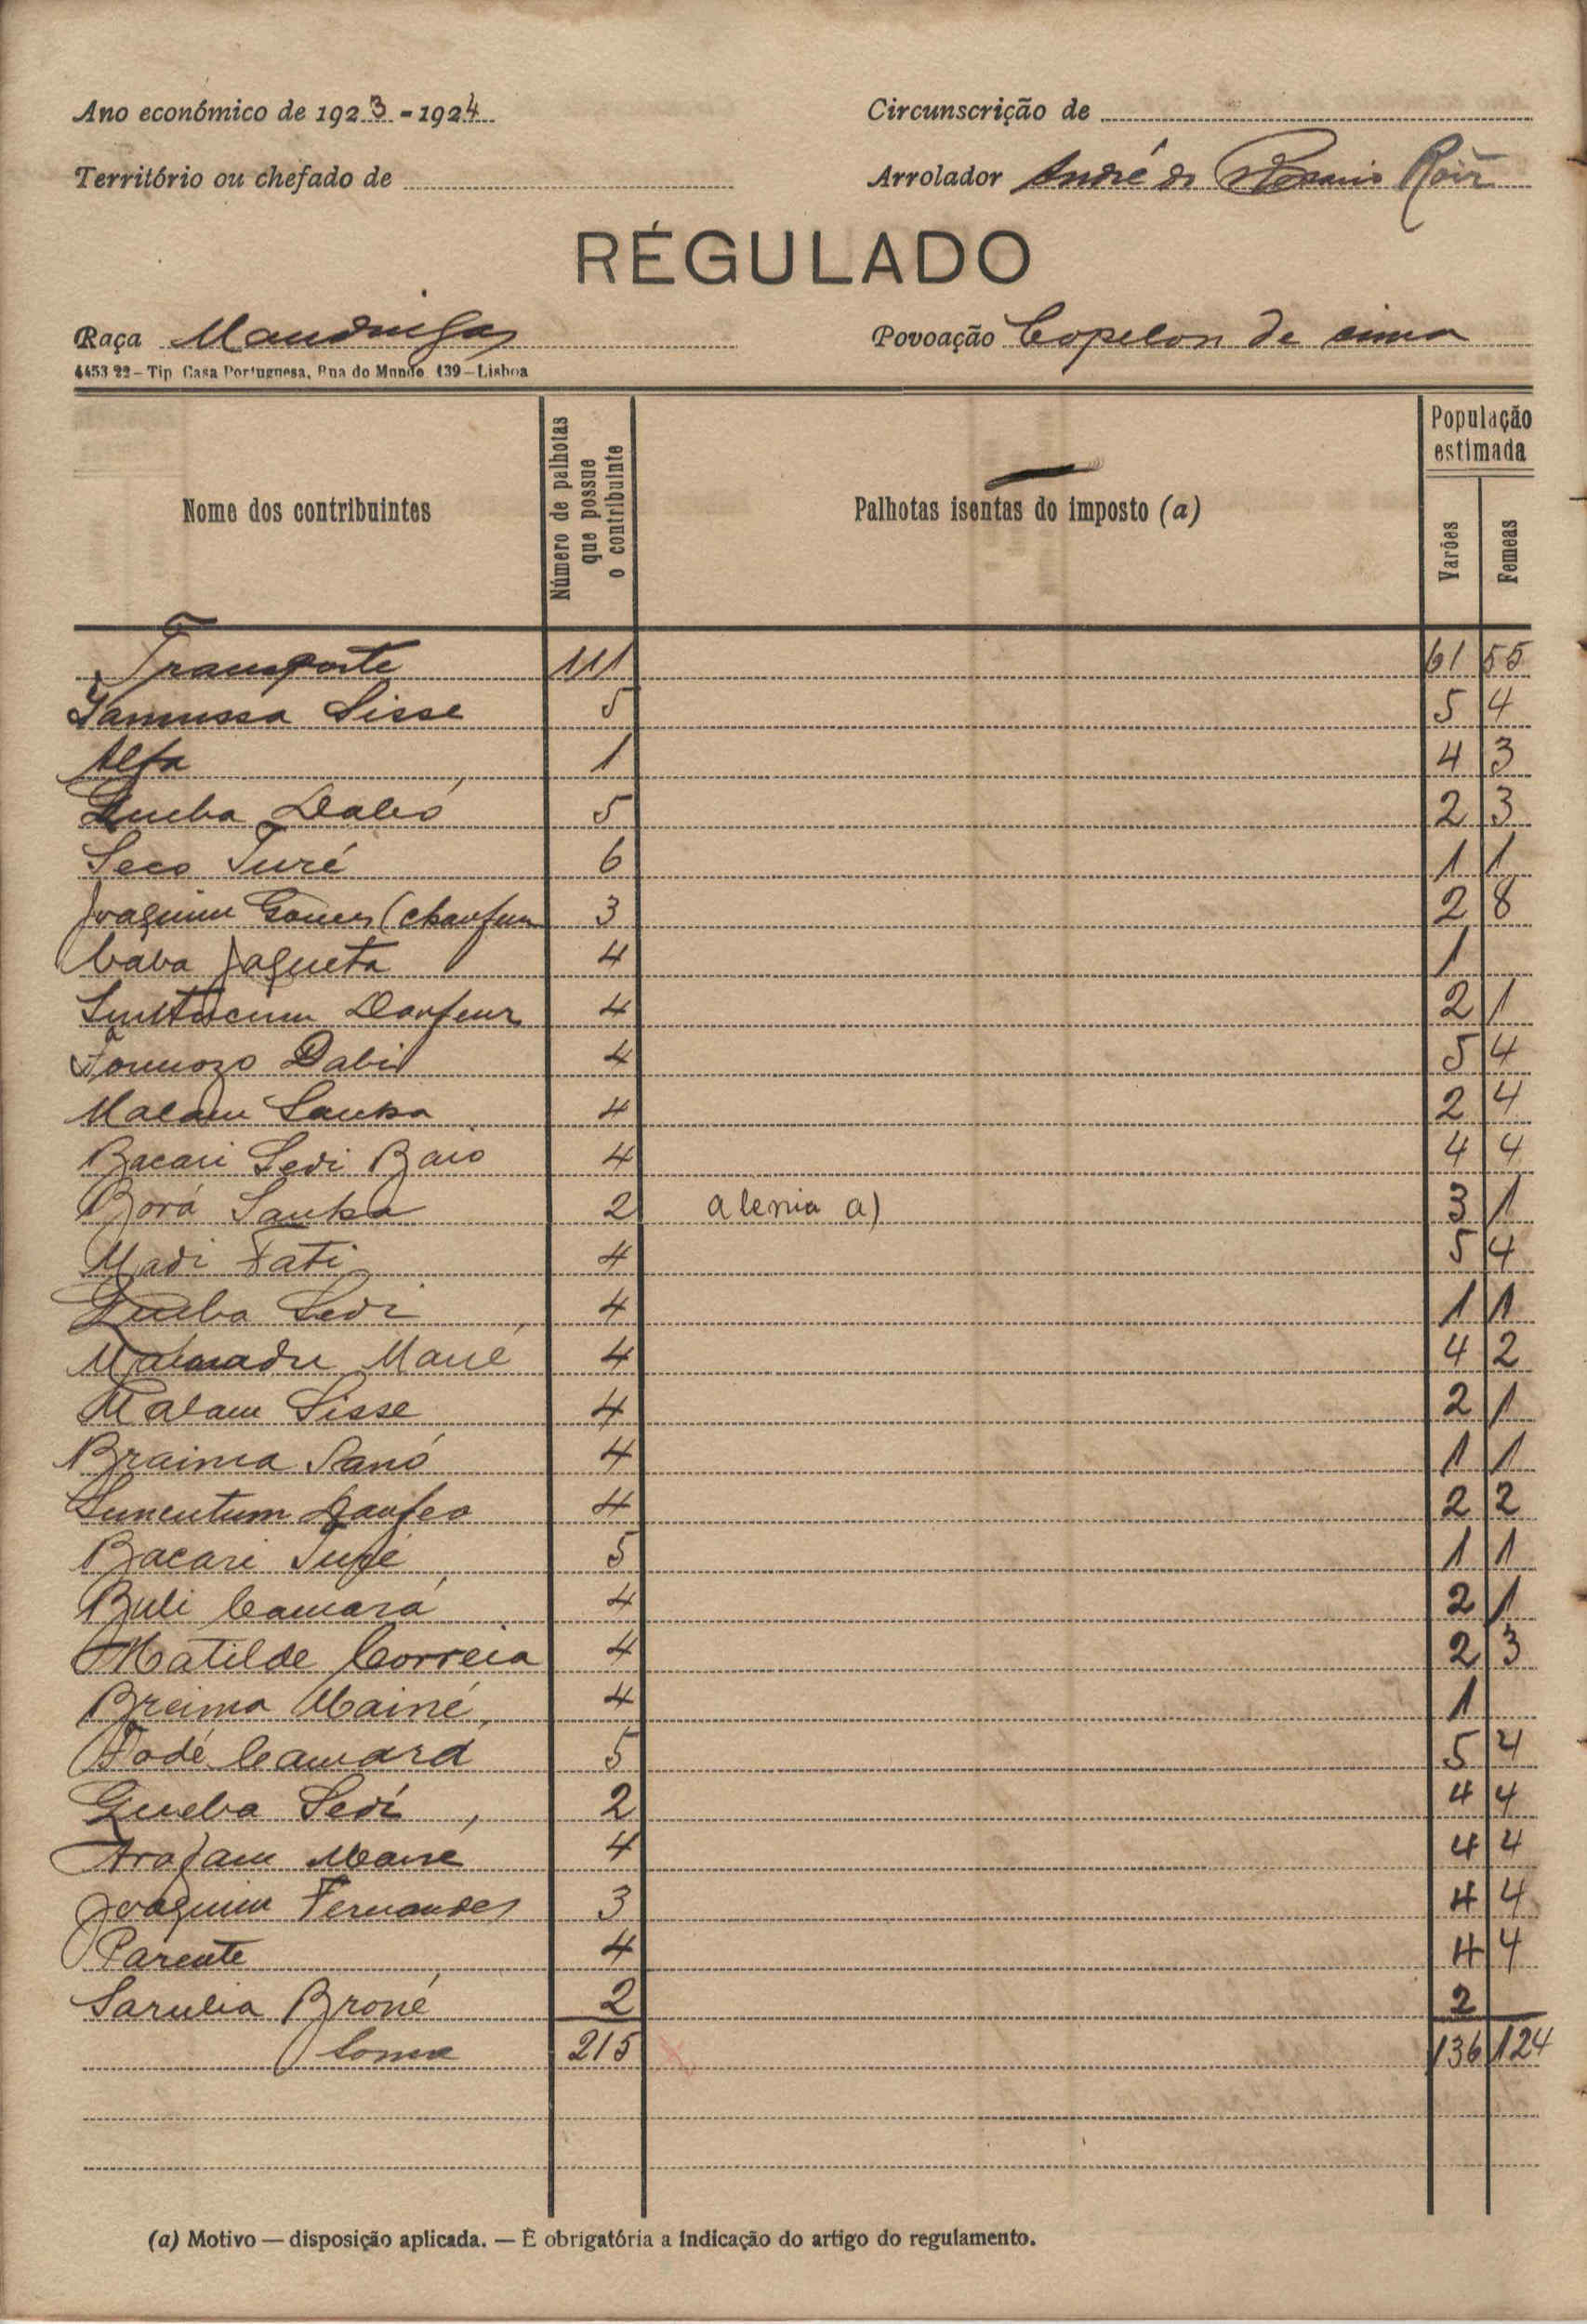 Ano económico de 1923-1924 Circunscrição de
Território ou chefado de Arrolador André do Rosario
RÉGULADO
Raça Mandingas Povoação Copelon de cima
4453 22 – Tip Casa Portuguesa, Rua do Mundo 139 – Lisboa
Nome dos contribuintes
Número de palhotas que possue o contribuinte
Palhotas isentas do imposto (a)
População estimada
Varões Femeas
Transporte 111 61 55
Sisse 5 5 4
Alfa 1 4 3
Dabó 5 2 3
Seco Turé 6 1 1
Joaquim Gomes (chaufeur 3 2 8
Jaqueta 4 1
4 2 1
Formozo Dabó 4 5 4
Malam Sanha 4 2 4
Bacari Sedi Baio 4 4 4
Borá Sanha 2 a) 3 1
Madi Fati 4 5 4
Queba Sedi 4 1 1
Mamadu Mané 4 4 2
Malam Sisse 4 2 1
Braima Sanó 4 1 1
4 2 2
Bacari Turé 5 1 1
Buli Camará 4 2 1
Matilde Correia 4 2 3
Breima Mainé 4 1
Fodé Camará 5 5 4
Queba Sedi 2 4 4
Arafam Mané 4 4 4
Joaquim Fernandes 3 4 4
Parente 4 4 4
Broné 2 2
Soma 215 136 124
(a) Motivo — disposição aplicada. — È obrigatória a indicação do artigo do regulamento.